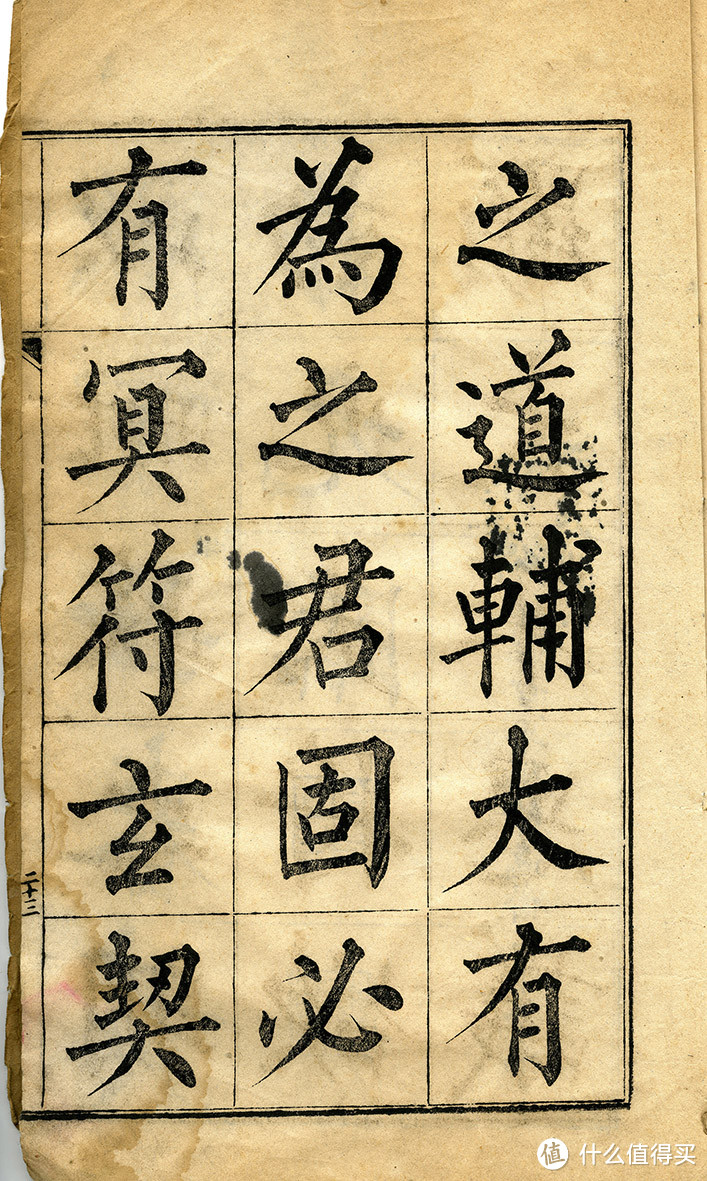 之道輔大有
為之君固必
有冥符玄契
二十三
值 什么值得买